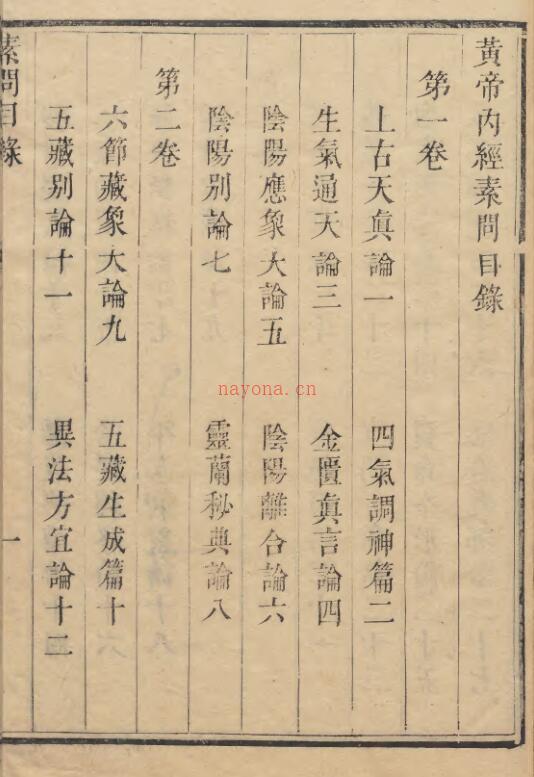 黃帝內經素問目錄
第一卷
上古天眞論一 四氣調神篇二
生氣通天論三 金匱眞言論四
陰陽應象大論五 陰陽離合論六
陰陽別論七 靈蘭秘典論八
第二卷
六節藏象大論九 五藏生成篇十
五藏別論十一 異法方宜論十二
素問目錄 一
nayona.cn